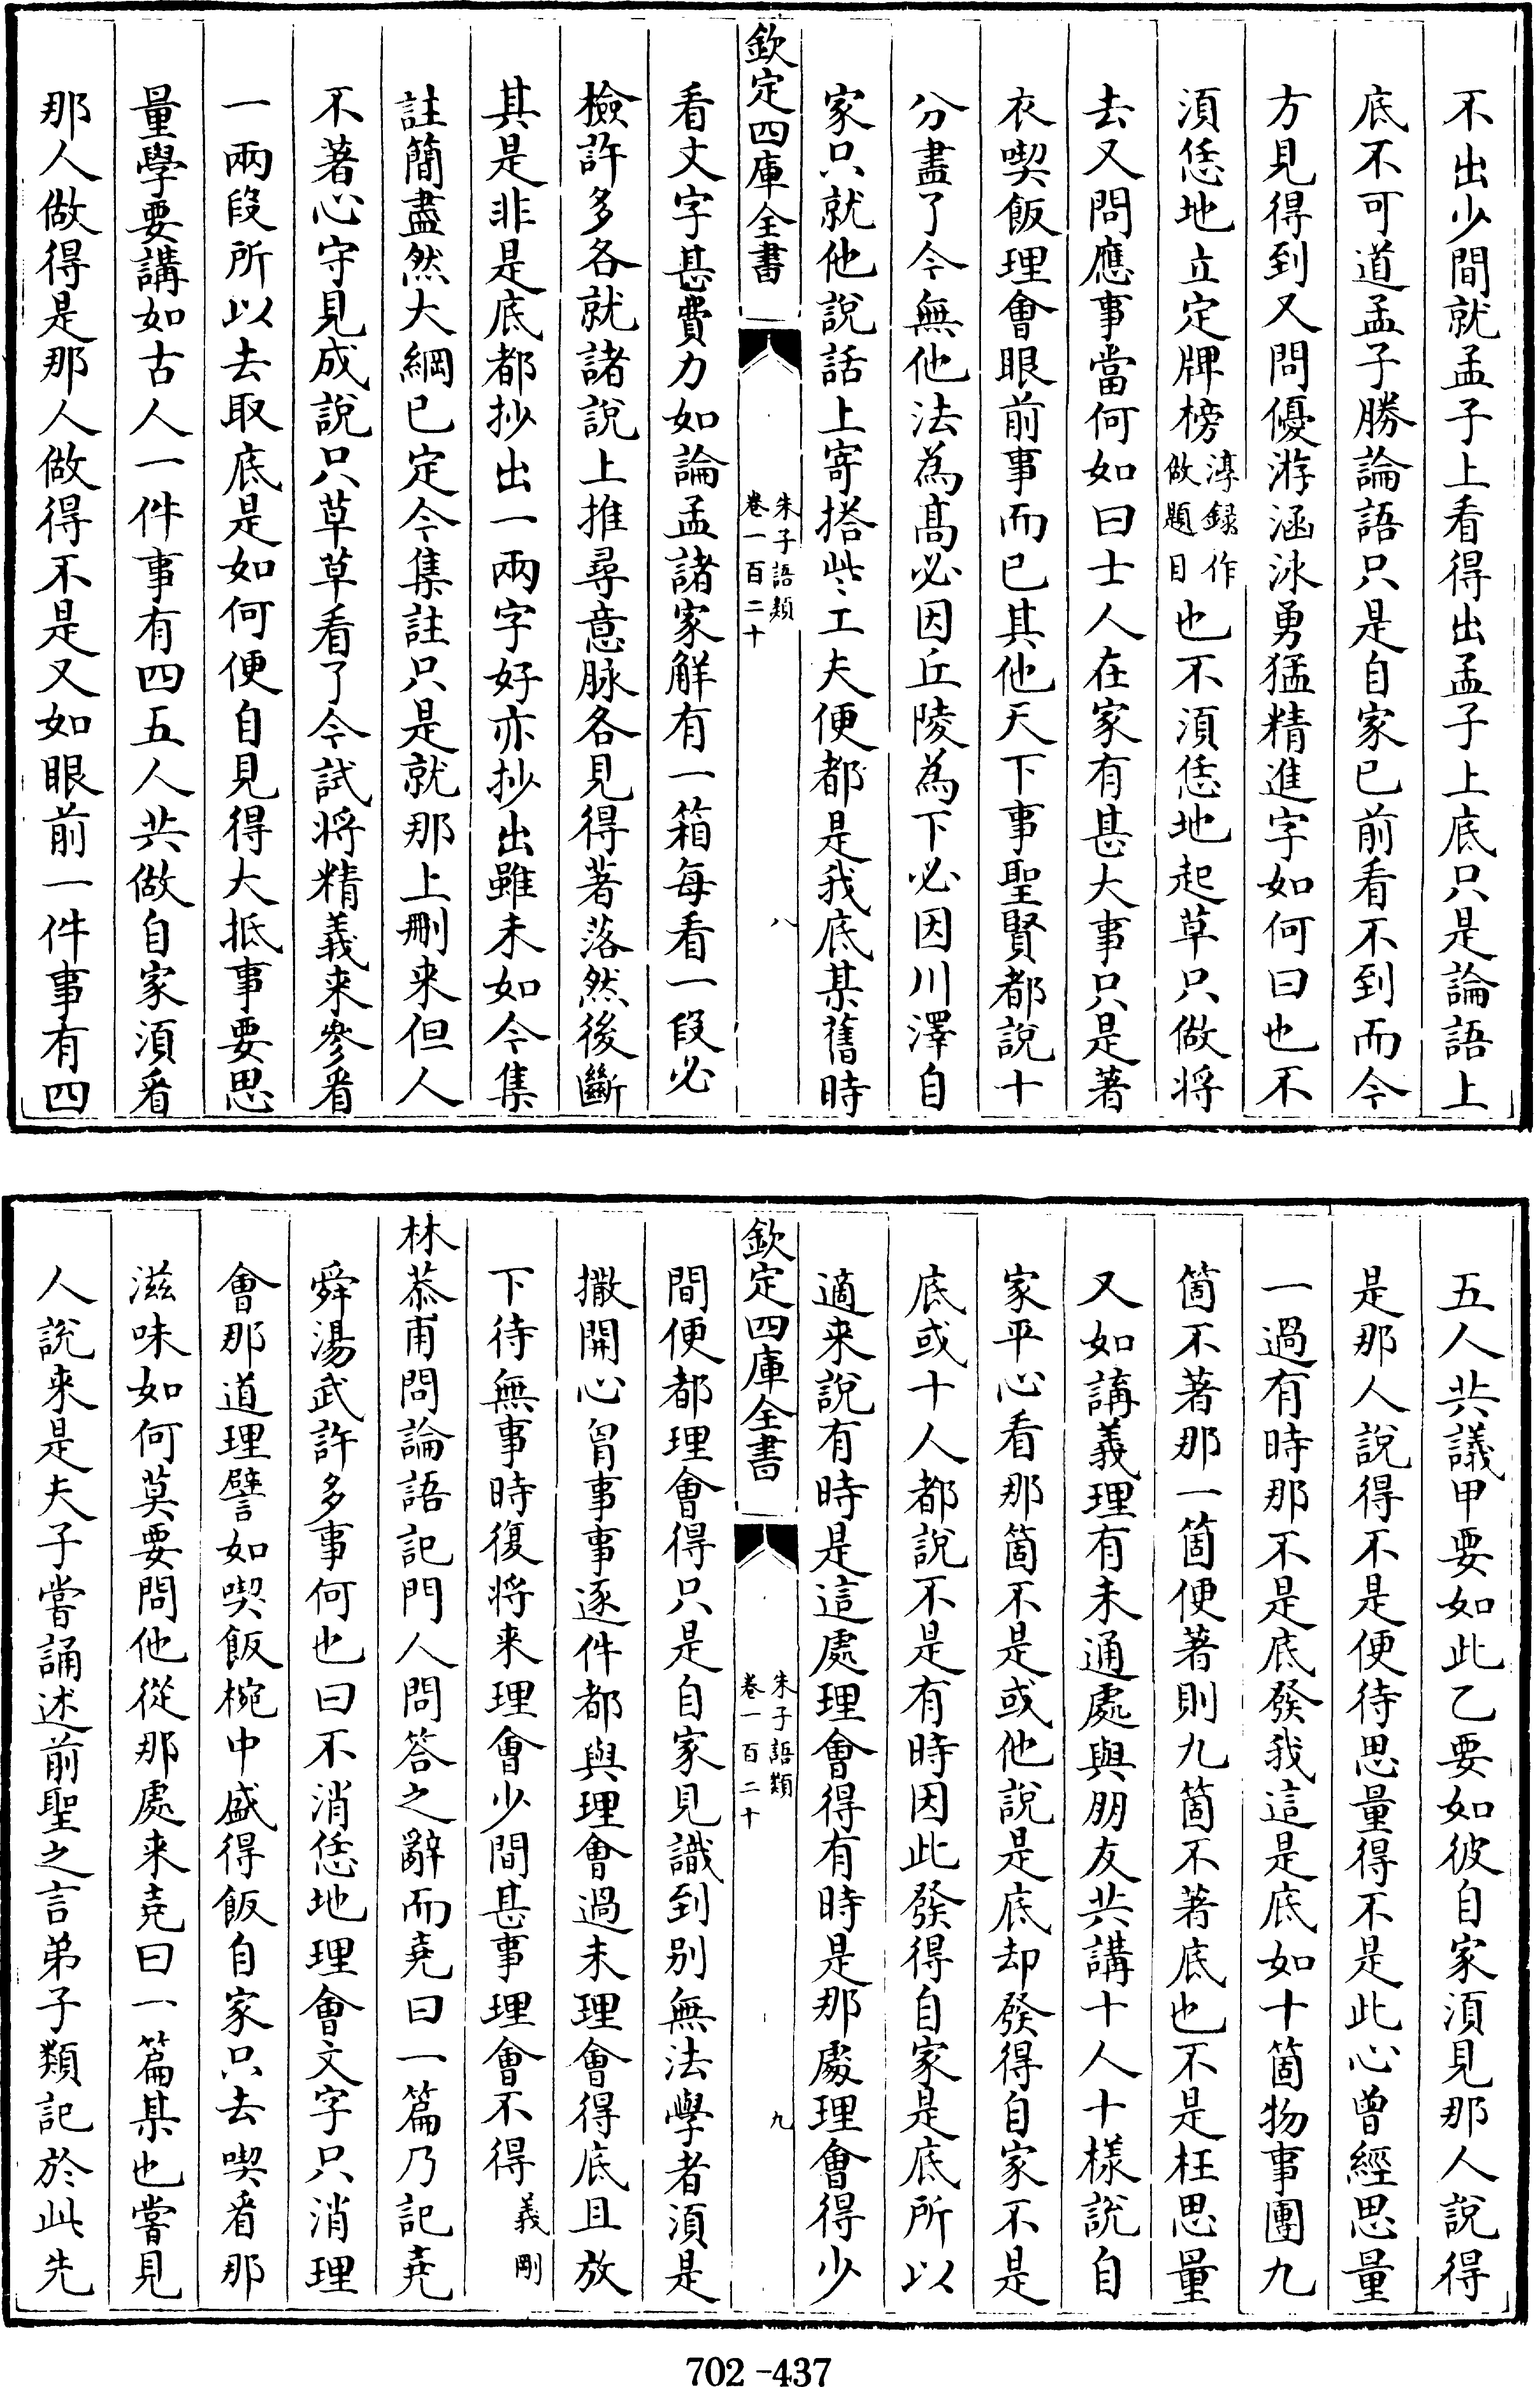 不出少間就孟子上看得出孟子上底只是論語上
底不可道孟子勝論語只是自家已前看不到而今
方見得到又問優游涵泳勇猛精進字如何曰也不
須恁地立定牌榜淳録作做題目也不須恁地起草只做将
去又問應事當何如曰士人在家有甚大事只是著
衣喫飯理會眼前事而已其他天下事聖賢都說十
分盡了今無他法為髙必因丘陵為下必因川澤自
家只就他說話上寄搭些工夫便都是我底某舊時
欽定四庫全書
朱子語類
卷一百二十
八
看文字甚費力如論孟諸家解有一箱每看一段必
檢許多各就諸說上推尋意脉各見得著落然後斷
其是非是底都抄出一兩字好亦抄出雖未如今集
註簡盡然大綱已定今集註只是就那上刪来但人
不著心守見成說只草草看了今試将精義来參看
一兩段所以去取底是如何便自見得大抵事要思
量學要講如古人一件事有四五人共做自家須看
那人做得是那人做得不是又如眼前一件事有四
五人共議甲要如此乙要如彼自家須見那人說得
是那人說得不是便待思量得不是此心曾經思量
一過有時那不是底發我這是底如十箇物事團九
箇不著那一箇便著則九箇不著底也不是枉思量
又如講義理有未通處與朋友共講十人十樣說自
家平心看那箇不是或他說是底却發得自家不是
底或十人都說不是有時因此發得自家是底所以
適来說有時是這處理會得有時是那處理會得少
欽定四庫全書
朱子語類
卷一百二十
九
間便都理會得只是自家見識到别無法學者須是
撒開心胷事事逐件都與理會過未理會得底且放
下待無事時復将来理會少間甚事理會不得義剛
林恭甫問論語記門人問答之辭而堯曰一篇乃記堯
舜湯武許多事何也曰不消恁地理會文字只消理
會那道理譬如喫飯椀中盛得飯自家只去喫看那
滋味如何莫要問他從那處来堯曰一篇某也嘗見
人說来是夫子嘗誦述前聖之言弟子類記於此先
702-437